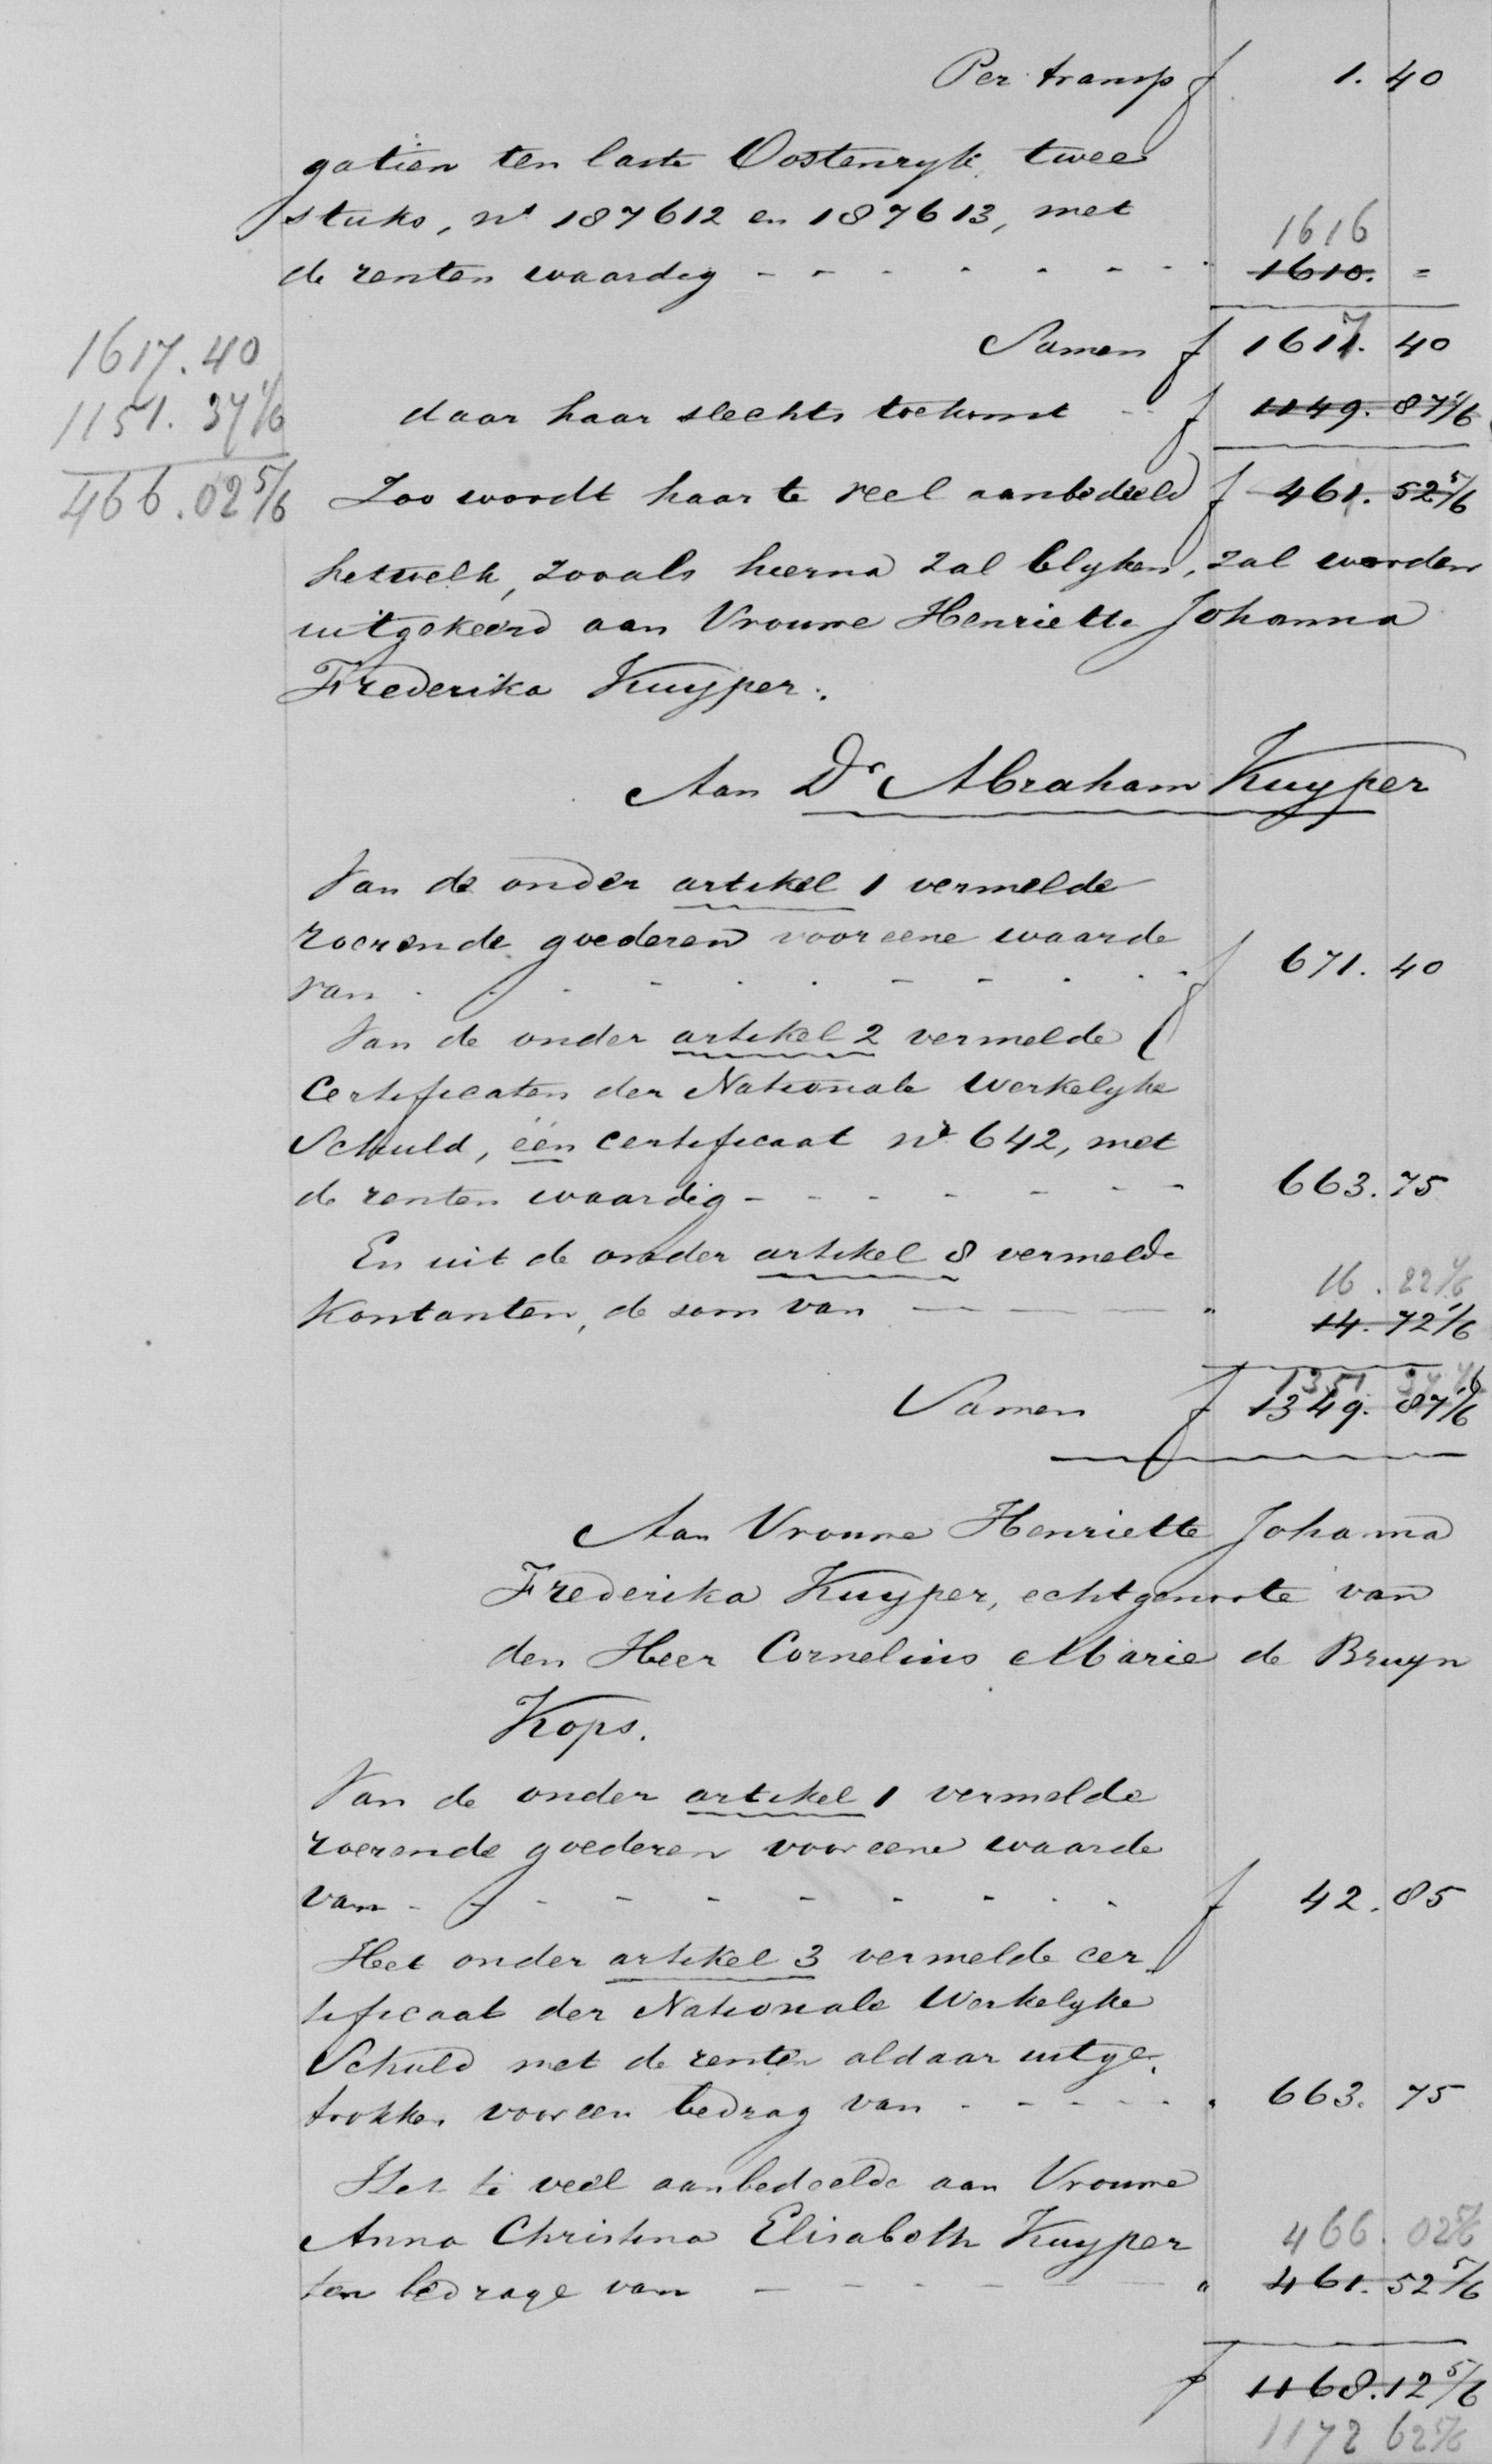 Per transp f 1.40
gatien ten laste Oostenryk, twee
stuks, No 187612 en 187613, met
1616
de renten waardig - - - - - - - 1610. =
Samen f 1617. 40
1617.40
1151.37 1/6
466.02 5/6
daar haar slechts toekomt - - f 1149. 87 1/6
Zoo wordt haar te veel aanbedeeld f 461. 52 5/6
hetwelk, zooals hierna zal blyken, zal worden
uitgekeerd aan Vrouwe Henriette Johanna
Frederika Kuyper.
Aan Dr Abraham Kuyper
Van de onder artikel 1 vermelde
roerende goederen voor eene waarde
van - - - - - - - - - f 671. 40
Van de onder artikel 2 vermelde
Certificaten der Nationale Werkelyke
Schuld, één certificaat No 642, met
de renten waardig - - - - - - - 663. 75
En uit de onder artikel 8 vermelde
16. 22 1/6
Kontanten, de som van - - - " 14. 72 1/6
1351 37 1/6
Samen f 1349. 87 1/6
Aan Vrouwe Henriette Johanna
Frederika Kuyper, echtgenoote van
den Heer Cornelius Marie de Bruyn
Kops.
Van de onder artikel 1 vermelde
roerende goederen voor eene waarde
van - - - - - - - - - f 42. 85
Het onder artikel 3 vermelde cer-
tificaat der Nationale Werkelyke
Schuld met de renten aldaar uitge-
trokken voor een bedrag van - - - - - " 663. 75
Het te veel aanbedeelde aan Vrouwe
Anna Christina Elisabeth Kuyper 466. 02 5/6
ten bedrage van - - - - - " 461. 52 5/6
f 1168. 12 5/6
1172 62 5/6